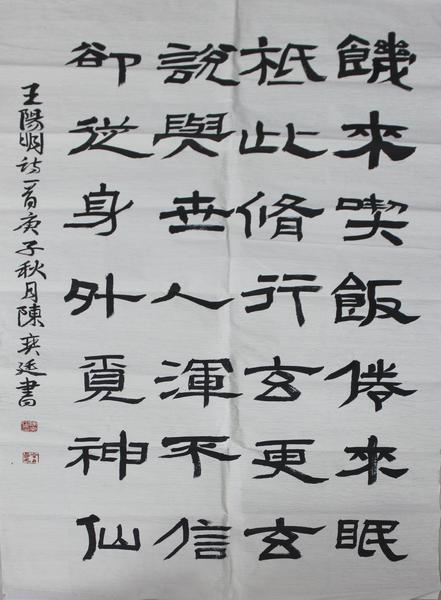 饑來喫飯倦來眠
祗此脩行玄更玄
說與世人渾不信
卻從身外覓神仙
王陽明詩一首庚子秋月陳奕廷書